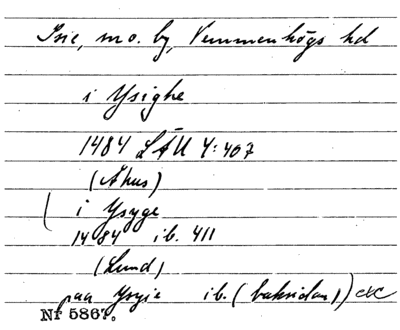 Isie, sn o. by, Vemmenhögs hd
i Ysighe
1484 LÄU 4:407
(Åhus)
( i Ysyge
1484 ib. 411
(Lund)
paa Ysyie ib. (baksidan)) CXC
Nr 5867.